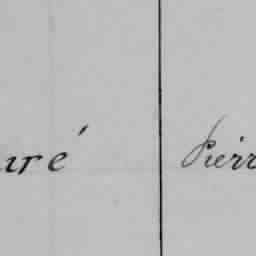 uré Pierr